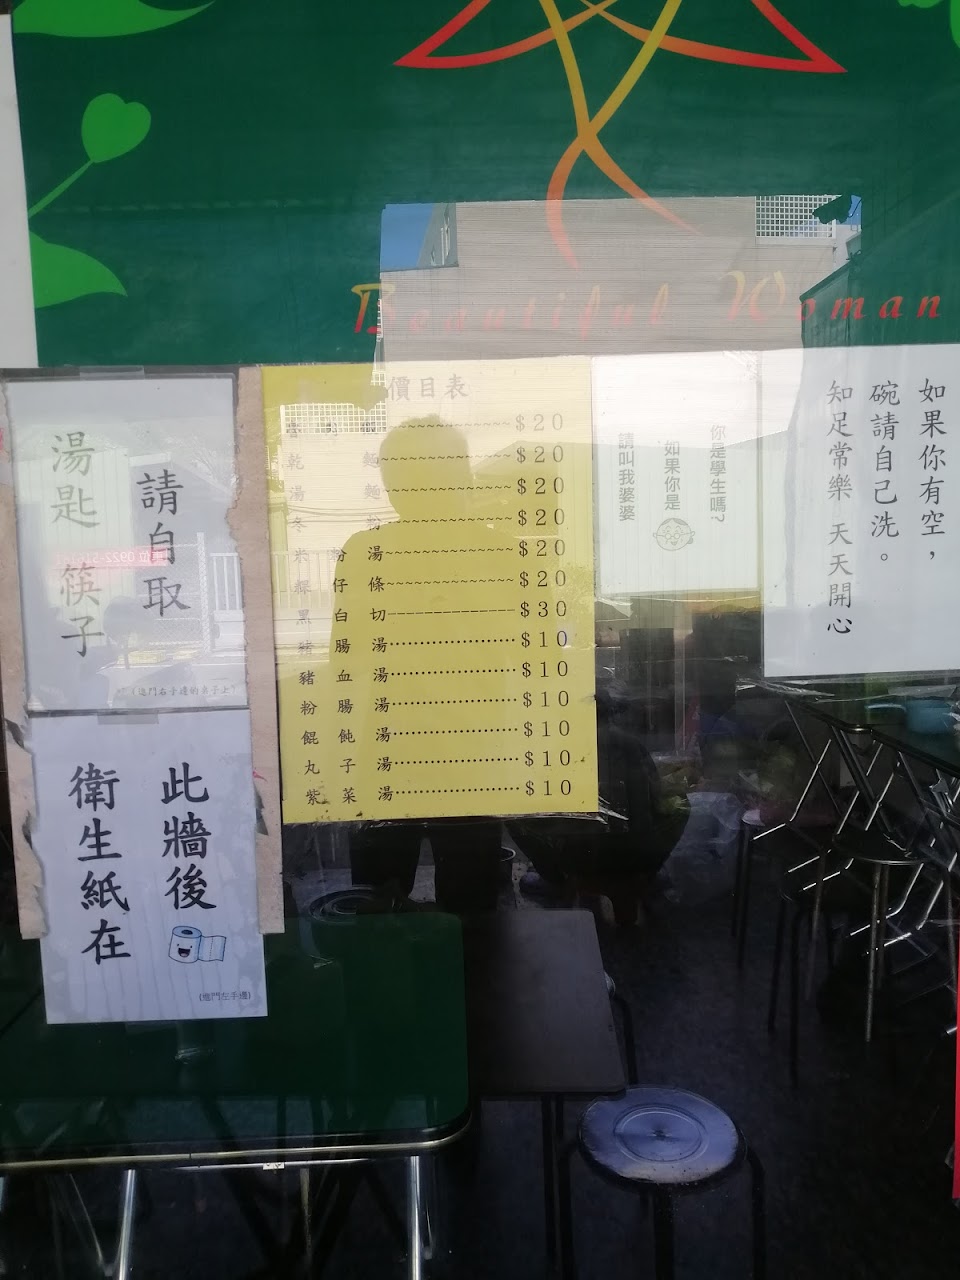 Beautiful Woman
湯匙
筷子
請自取
(進門右手邊的桌子上)
衛生紙在
此牆後
(進門左手邊)
價目表
$20
乾 麵~~~~~~~~~~~~$20
湯 麵~~~~~~~~~~~~$20
冬 粉~~~~~~~~~~~~$20
米 粉 湯~~~~~~~~~~~~$20
粿 仔 條~~~~~~~~~~~~$20
黑 白 切--------------$30
豬 腸 湯····················$10
豬 血 湯····················$10
粉 腸 湯····················$10
餛 飩 湯····················$10
丸 子 湯····················$10
紫 菜 湯····················$10
你是學生嗎?
如果你是
請叫我婆婆
如果你有空，
碗請自己洗。
知足常樂 天天開心